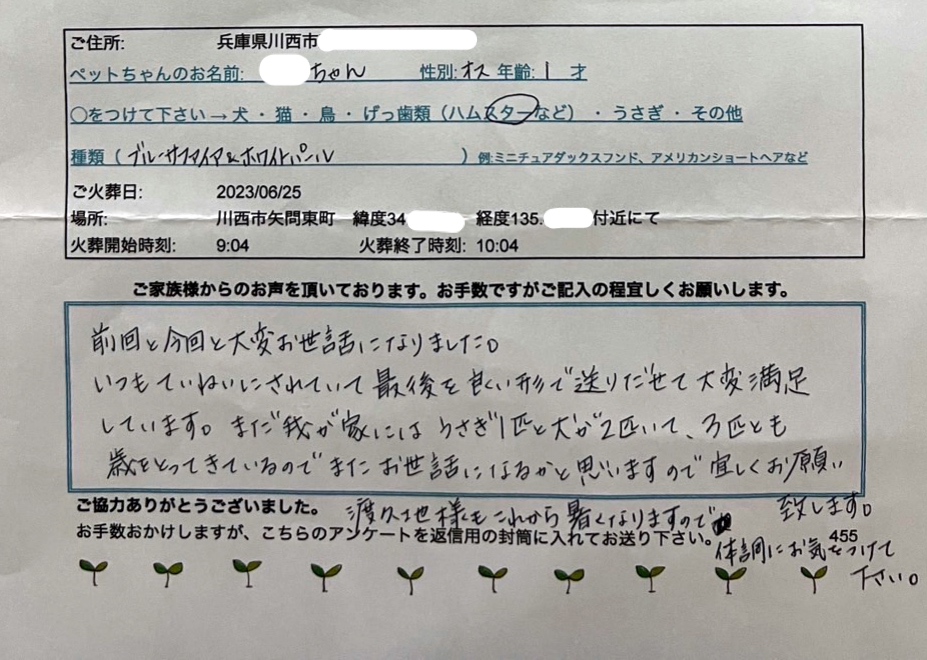 ご住所: 兵庫県川西市
ペットちゃんのお名前: ちゃん 性別:オス 年齢:1 才
○をつけて下さい→犬・猫・鳥・げっ歯類（ハムスターなど）・うさぎ・その他
種類（ブルーサファイア&ホワイトパール）例:ミニチュアダックスフンド、アメリカンショートヘアなど
ご火葬日: 2023/06/25
場所: 川西市矢問東町 緯度34 経度135. 付近にて
火葬開始時刻: 9:04 火葬終了時刻: 10:04
ご家族様からのお声を頂いております。お手数ですがご記入の程宜しくお願いします。
前回と今回と大変お世話になりました。
いつもていねいにされていて最後を良い形で送りだせて大変満足
しています。まだ我が家にはうさぎ1匹と犬が2匹いて、3匹とも
歳をとってきているのでまたお世話になるかと思いますので宜しくお願い
致します。
ご協力ありがとうございました。
渡久地様もこれから暑くなりますので
体調にお気をつけて
下さい。
お手数おかけしますが、こちらのアンケートを返信用の封筒に入れてお送り下さい。
455